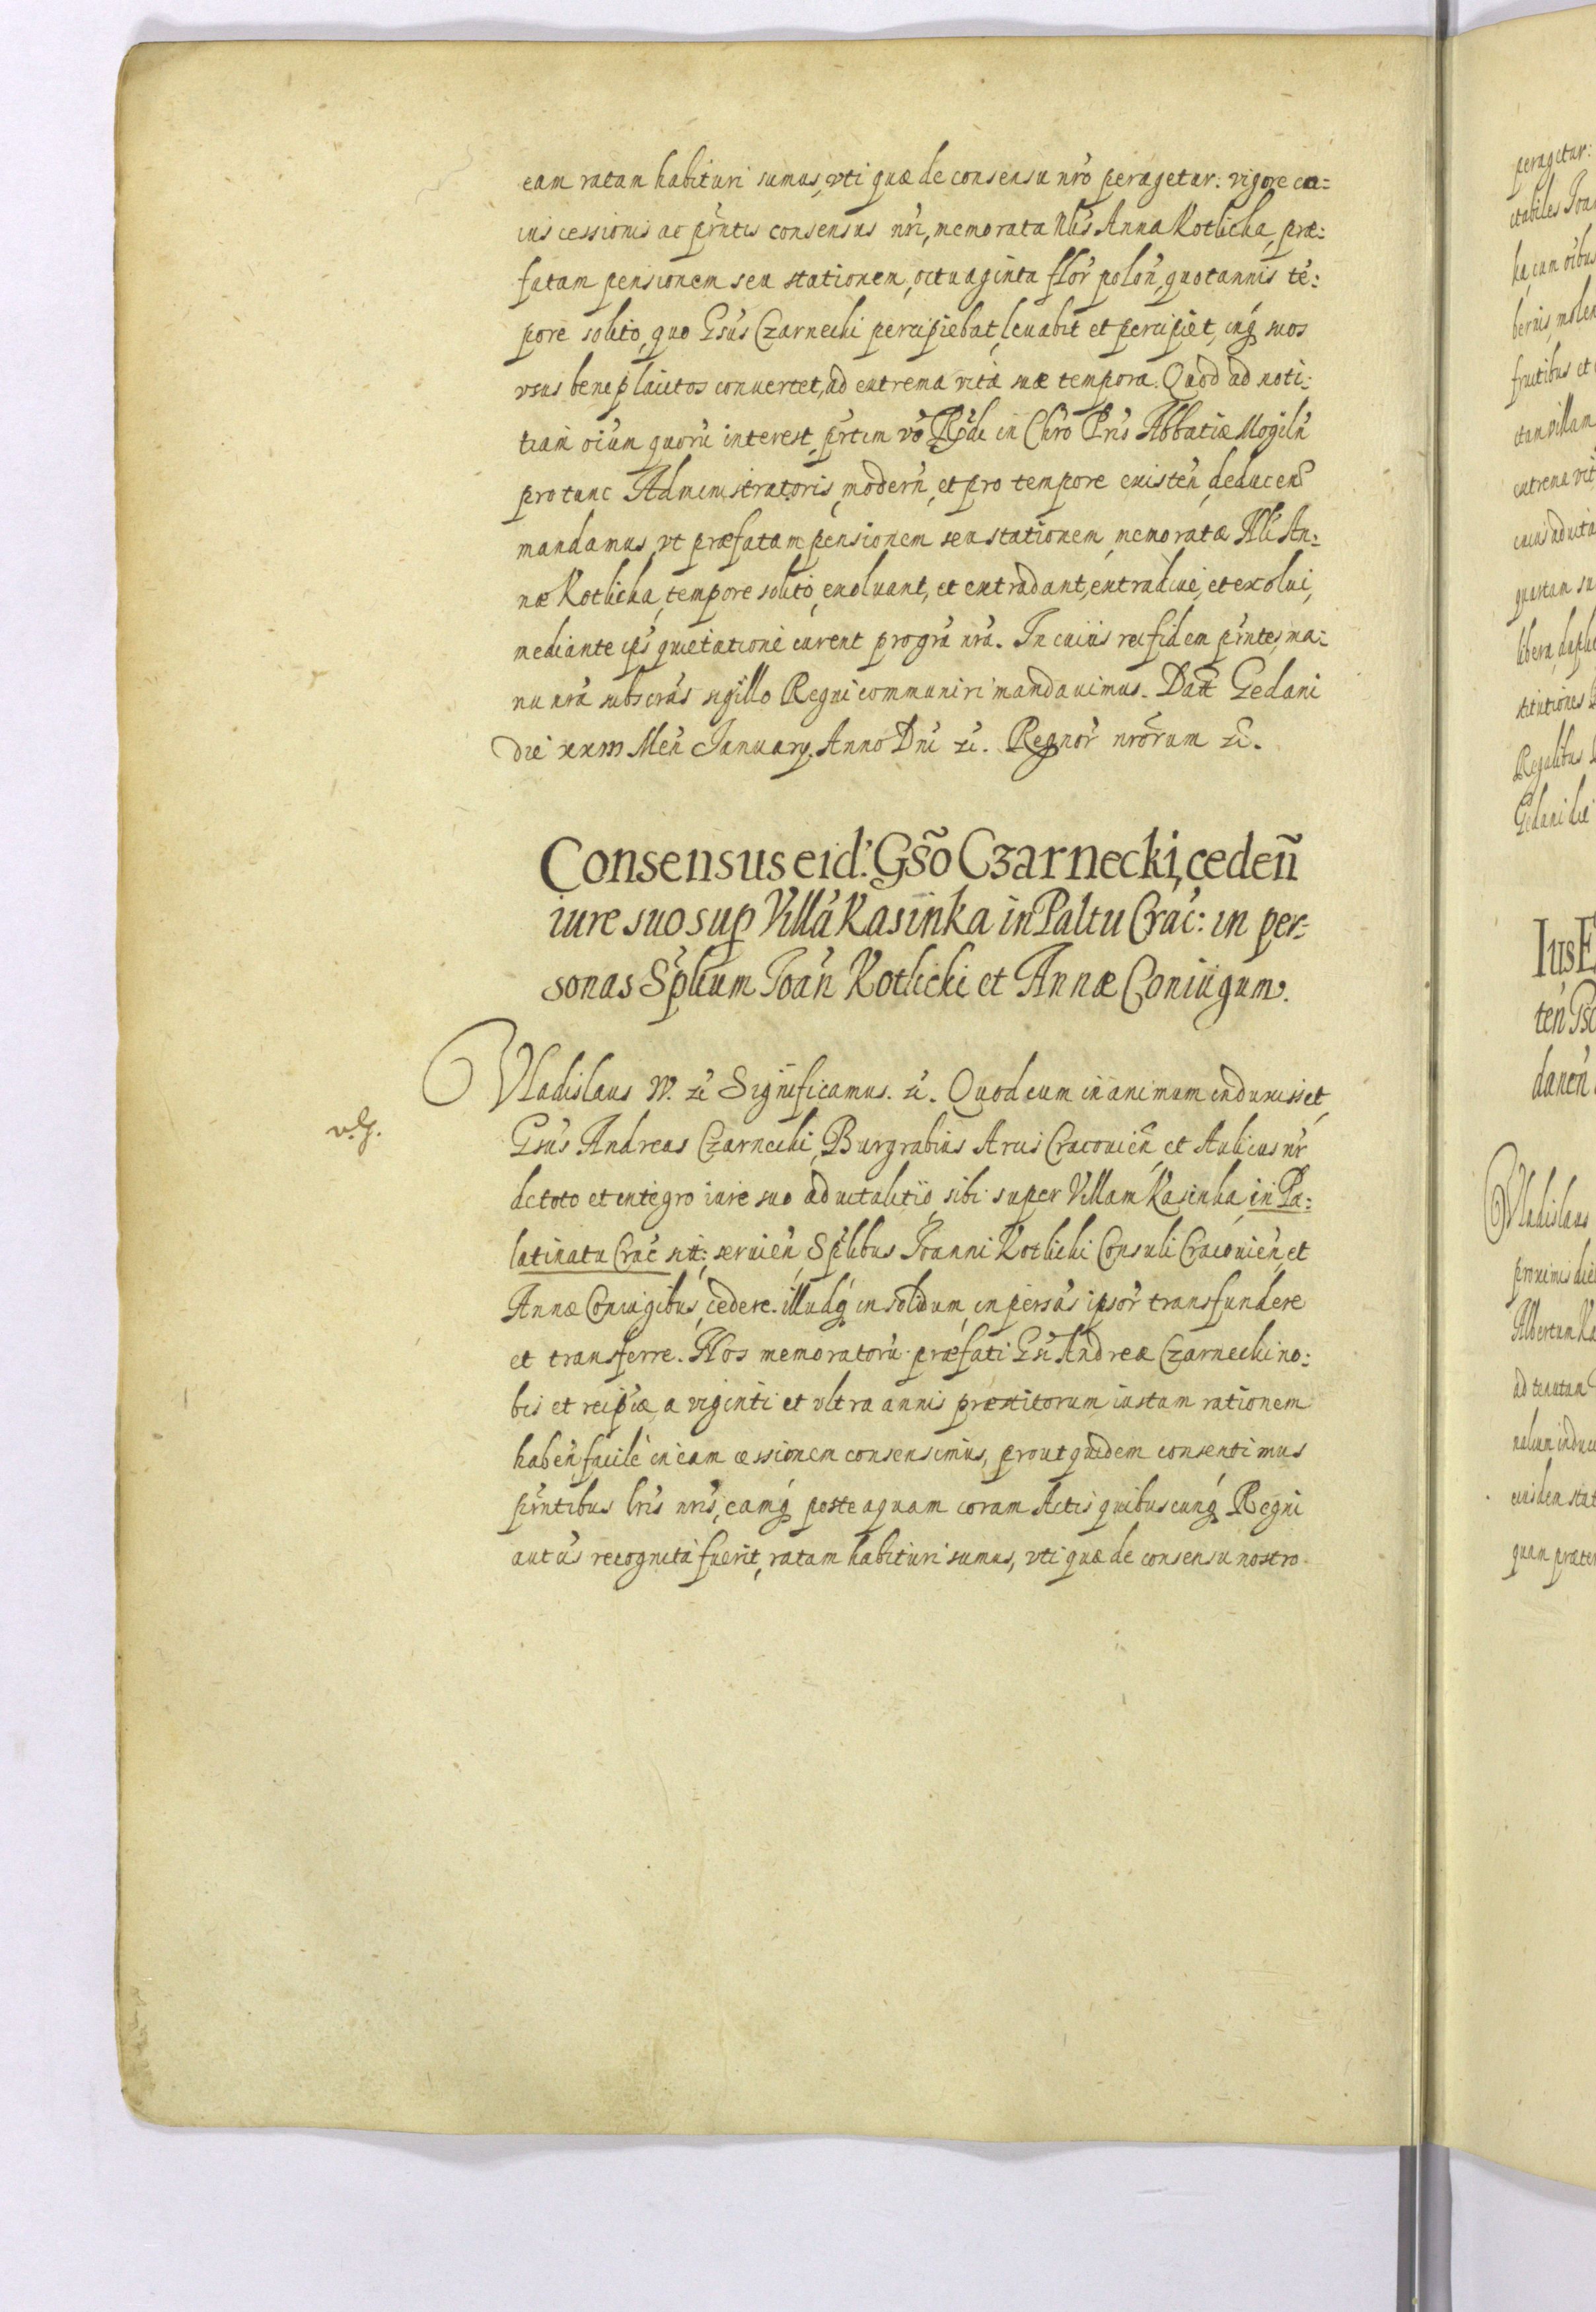 eam ratam habituri sumus, vti quæ de consensu nrõ peragetur: vigore eu=
ius cessionis ac pr̃ntis consensus nrĩ, memorata Nlis̃ Anna Kotlicka, præ=
fatam pensionem seu stationem, octuaginta flor̃ polon̄, quotannis tẽ=
pore solito, quo Gsũs Czarnecki percipiebat, leuabit et percipiet, inq̃ suos
vsus beneplacitos conuertet, ad extrema vitæ suæ tempora. Quod ad noti=
tiam oiũm quorũ interest, prt̃im võ Rñdi in Chrõ Prĩs Abbatiæ Mogiln̄
pro tunc Administratoris, modern̄, et pro tempore existen̄, deducen̄
mandamus, vt præfatam pensionem seu stationem, memoratæ Nlĩ An=
næ Kotlicka, tempore solito, exoluant, et extradant, extradiui, et exolui,
mediante ips̃ quietatione curent pro grã nrã. In cuius rei fidem prñtes, ma=
nu nrã subscrãs sigillo Regni communiri mandauimus. Datt Gedani
die xxiii Men̄ January. Anno Dnĩ zc̃. Regnor̃ nrõrum zc̃.
Consensus eid: Gsõ Czarnecki, ceden̄
iure suo sup Villã Kasinka in Paltu Crac̃: in per=
sonas Spl̃ium Joan̄ Kotlicki et Annæ Coniugum.
Vladislaus IV. zc̃ Significamus. zc̃. Quod cum in animum induxisset,
Gsũs Andreas Czarnecki, Burgrabius Arcis Cracouien̄ et Aulicus nr̃
de toto et integro iure suo aduitalitio, sibi super Villam Kasinka, in Pa=
latinatu Crac̃ sit: seruien̄, Spl̃ibus Joanni Kotlicki Consuli Cracouien̄, et
Annæ Coniugibus, cedere. illudq̃ in solidum, in persãs ipsor̃ transfundere
et transferre. Nos memoratorũ præfati Gsĩ Andreæ Czarnecki no=
bis et reipcæ, a viginti et vltra annis præstitorum iustam rationem
haben̄, facile in eam cessionem consensimus, prout quidem consentimus
prñtibus lrĩs nrĩs, eamq̃ posteaquam coram Actis quibuscunq̃ Regni
autũs recognita fuerit, ratam habituri sumus, vti quæ de consensu nostro